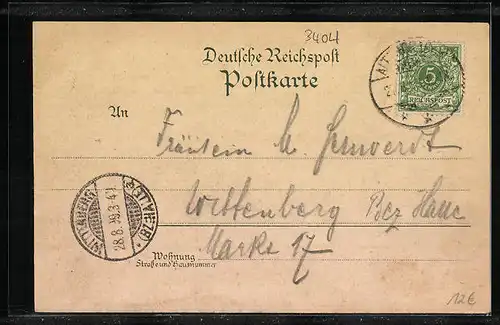 3404
Deutsche Reichspost
Postkarte
5
REICHSPOST
An
Fräulein
Wittenberg Bez Halle
Markt 17
WITTENBERG
28.8.99.3-4N
(BZ.HALLE)
Wohnung
Straße und Hausnummer
12€